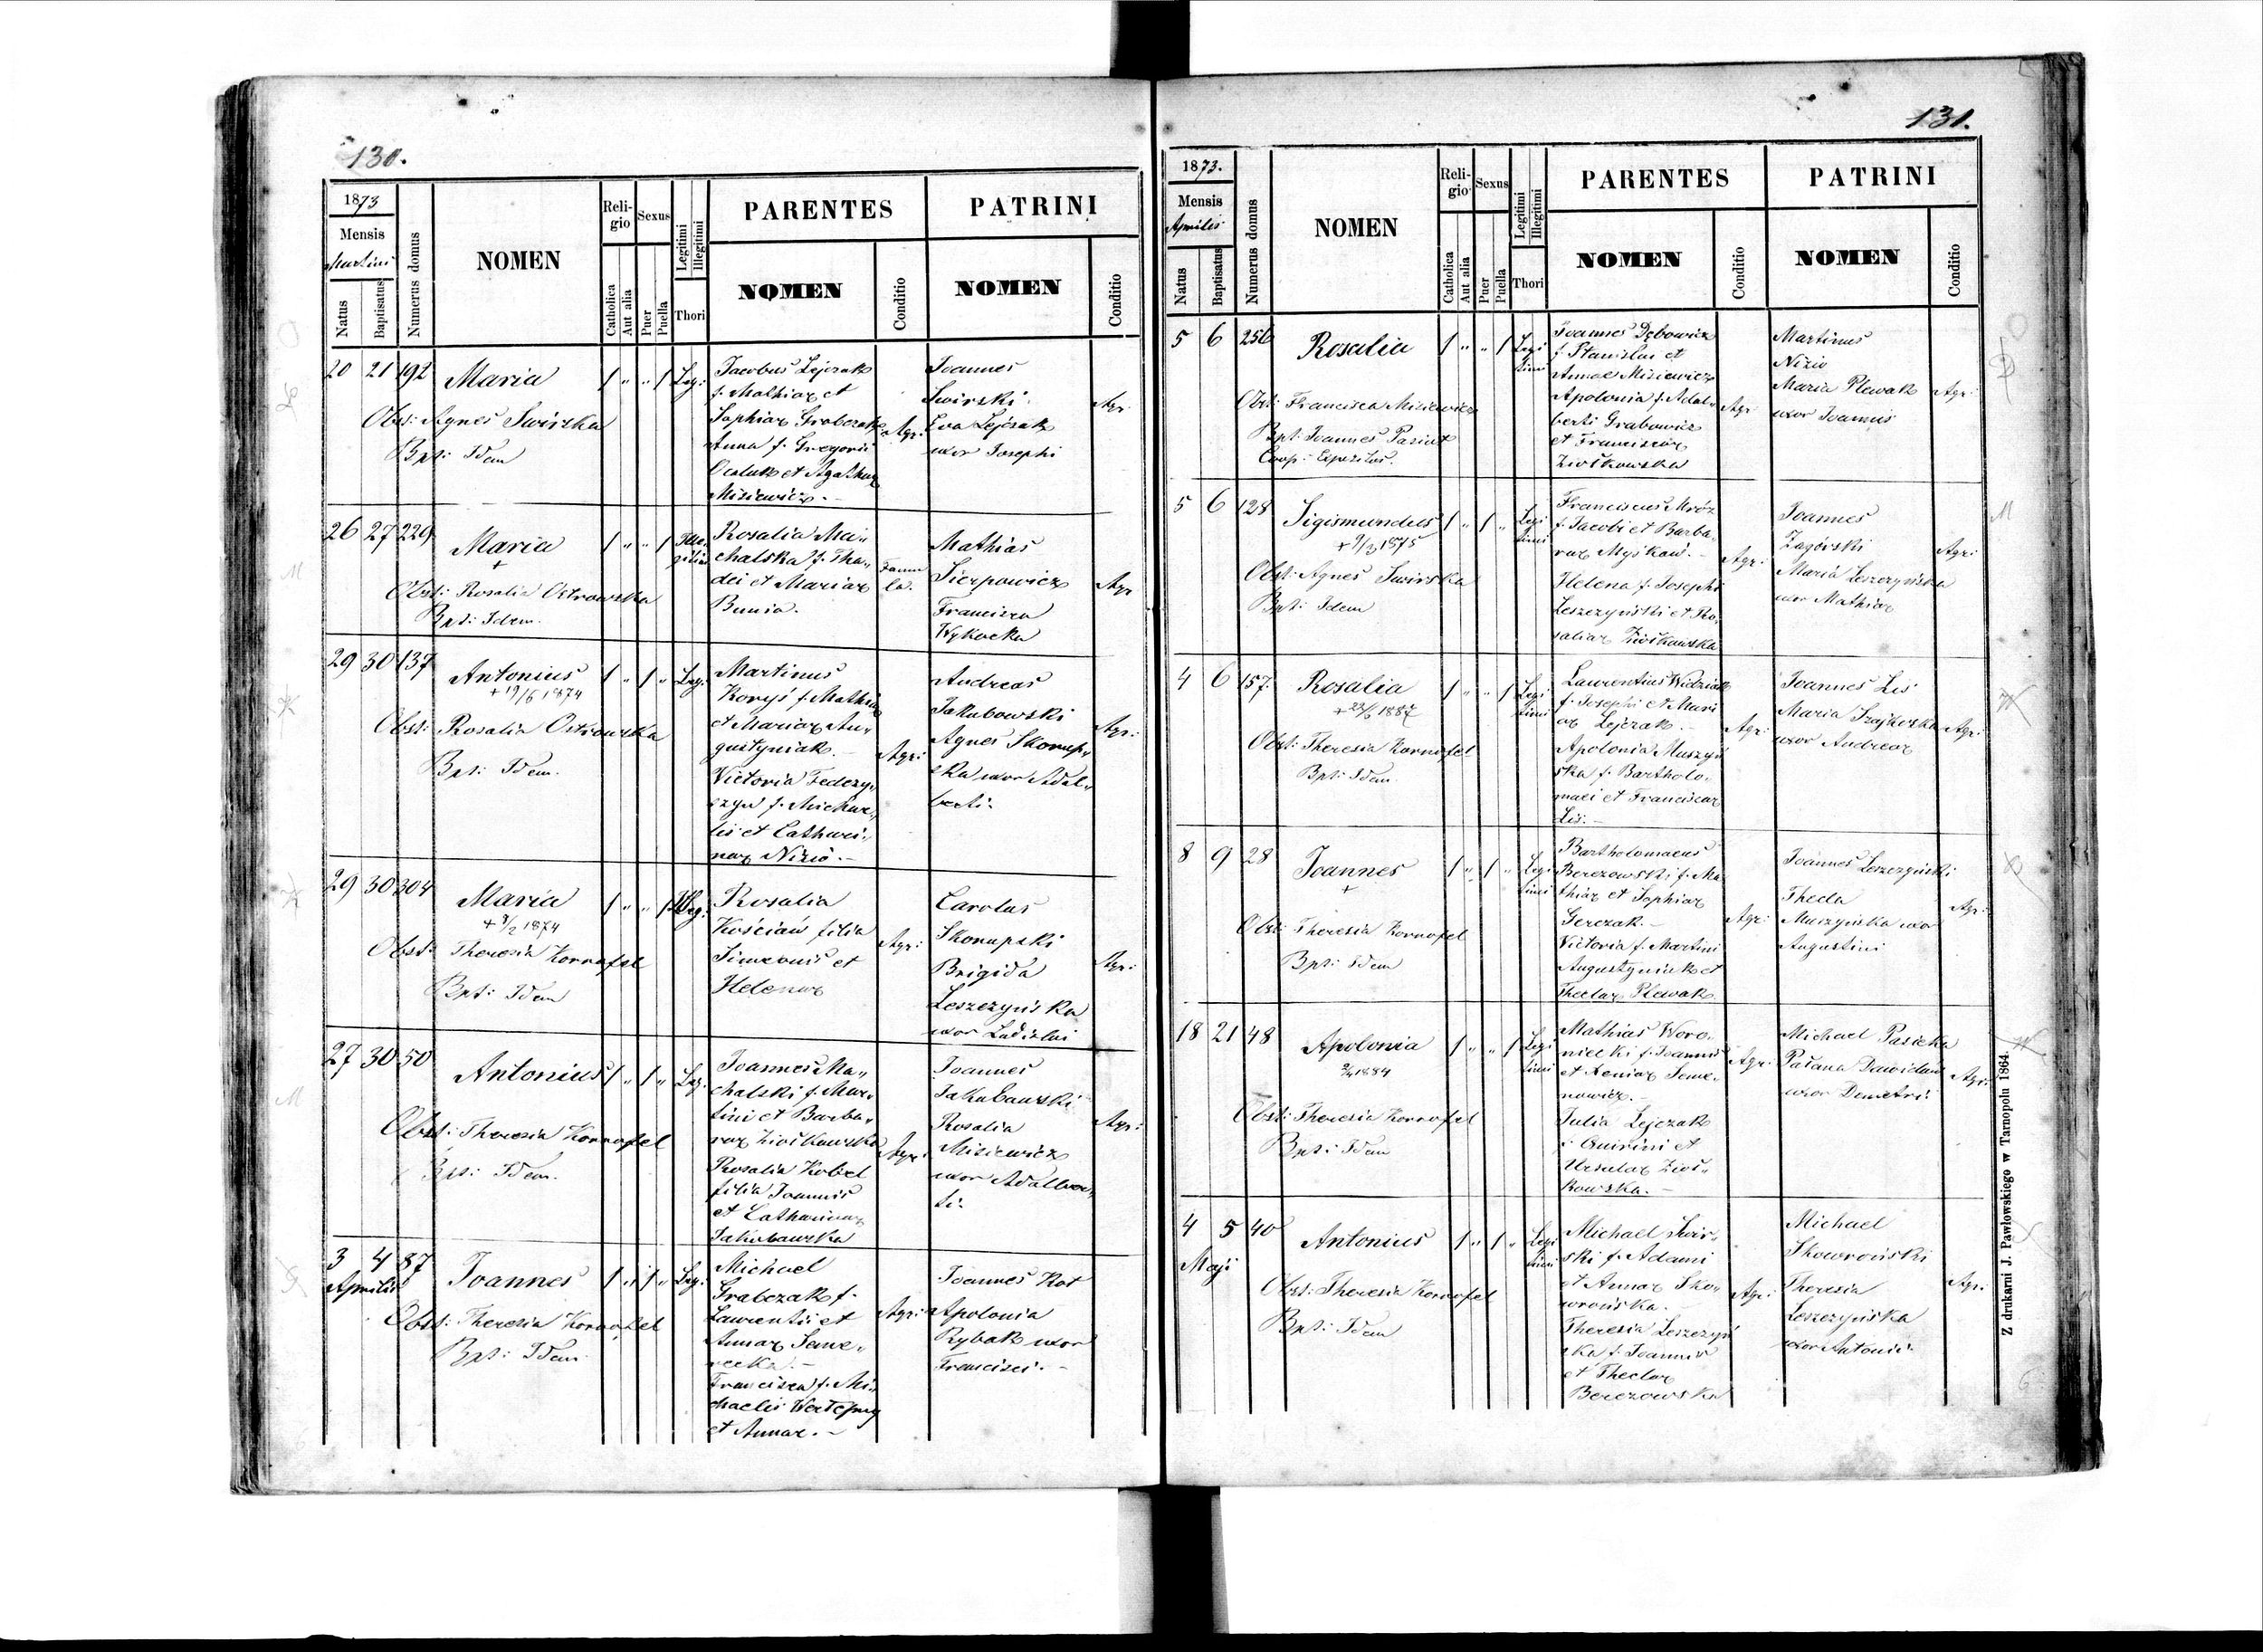 130.
1873
Mensis
Martini
Natus
Baptisatus
Numerus domus
NOMEN
Reli-
gio
Catholica
Aut alia
Sexus
Puer
Puella
Legitimi
Illegitimi
Thori
PARENTES
NOMEN
Conditio
PATRINI
NOMEN
Conditio
20 21 192
Maria
1 " " 1 Leg:
Obst: Agnes Swirska
Bpt: Idem
Jacobus Lejczak
f. Mathiae et
Sophiae Grabczak
Anna f. Gregorii
et Agathae
Misiewicz.-
Agr:
Joannes
Swirski
Eva Lejczak
uxor Josephi
Agr:
26 27 229
Maria
+
1 " " 1
Obst: Rosalia Ostrowska
Bpt: Idem.
Rosalia Ma„
chalska f. Tha„
dei et Mariae
Bunia.
Famu
la.
Mathias
Sierpowicz
Francisca
Wykocka
Agr
29 30 137
Antonius
+ 19/6 1874
1 " 1 " Leg:
Obst: Rosalia Ostrowska
Bpt: Idem.
Martinus
Korys f. Mathiae
et Mariae Au„
gustyniak.-
Victoria Fedczy„
czyn f. Michae„
lis et Cathari„
nae Nizio.-
Agr:
Andreas
Jakubowski
Agnes Skorup„
ska uxor Adal„
berti.
Agr:
29 30 304
Maria
+ 8/2 1874
1 " " 1 Illeg:
Obst: Theresia Kornafel
Bpt: Idem
Rosalia
Kościań filia
Simeonis et
Helenae
Agr:
Carolus
Skorupski
Brigida
Leszczyńska
uxor Ladislai
Agr:
27 30 50
Antonius
1 " 1 " Leg:
Obst: Theresia Kornafel
Bpt: Idem.
Joannes Ma„
chalski f. Mar„
tini et Barba„
rae Ziołkowska
Rosalia Kobel
filia Joannis
et Catharinae
Jakubowska
Agr:
Joannes
Jakubowski
Rosalia
Misiewicz
uxor Adalber„
ti.
Agr:
3 4 87
Aprilis
Joannes
1 " 1 " Leg:
Obst: Theresia Kornafel
Bpt: Idem
Michael
Grabczak f.
Laurentii et
Annae Seme„
recka.-
Francisca f. Mi„
chaelis Wertepny
et Annae.-
Agr:
Joannes Kot
Apolonia
Rybak uxor
Francisci.-
131.
1873.
Mensis
Aprilis
Natus
Baptisatus
Numerus domus
NOMEN
Reli-
gio
Catholica
Aut alia
Sexus
Puer
Puella
Legitimi
Illegitimi
Thori
PARENTES
NOMEN
Conditio
PATRINI
NOMEN
Conditio
5 6 256
Rosalia
1 " " 1 Legi
timi
Obst: Francisca Misiewicz
Bpt: Joannes Pasiut
Coop: Expositus.
Joannes Dębowicz
f. Stanislai et
Annae Misiewicz
Apolonia f. Adal„
berti Grabowicz
et Franciscae
Ziołkowska
Agr
Martinus
Nizio
Maria Plewak
uxor Joannis
Agr:
5 6 128
Sigismundus
+ 9/3 1875
1 " 1 " Legi
timi
Obst: Agnes Swirska
Bpt: Idem
Franciscus Mróz
f. Jacobi et Barba„
rae Myśków.-
Helena f. Josephi
Leszczyński et Ro„
saliae Ziołkowska
Agr:
Joannes
Zagórski
Maria Leszczyńska
uxor Mathiae
Agr:
4 6 157.
Rosalia
+ 22/6 1887
1 " " 1 Legi
timi
Obst: Theresia Kornafel
Bpt: Idem.
Laurentius Widziak
f. Josephi et Mari
ae Lejczak.-
Apolonia Muszyń
ska f. Bartholo„
maei et Franciscae
Lis.-
Agr:
Joannes Lis
Maria Szajkoska
uxor Andreae
Agr:
8 9 28
Joannes
+
1 " 1 " Legi
timi
Obst: Theresia Kornafel
Bpt: Idem
Bartholomaeus
Berezowski f. Ma
thiae et Sophiae
Gerczak.-
Victoria f. Martini
Augustyniak et
Theclae Plewak
Agr:
Joannes Leszczyński
Thecla
Muszyńska uxor
Augustini
Agr:
18 21 48
Apolonia
2/4 1884
1 " " 1 Legi
timi
Obst: Theresia Kornafel
Bpt: Idem
Mathias Woro„
niecki f. Joannis
et Xeniae Seme„
nowicz.-
Julia Lejczak
f. Quirini et
Ursulae Zioł„
kowska.-
Agr:
Michael Pasieka
uxor Demetri
Agr:
4 5 40
Maji
Antonius
1 " 1 " Legi
timi
Obst: Theresia Kornafel
Bpt: Idem
Michael Swir„
ski f. Adami
et Annae Sko„
wrońska.
Theresia Leszczyń
ska f. Joannis
et Theclae
Berezowska
Agr:
Michael
Skowroński
Theresia
Leszczyńska
uxor Antonii.
Agr:
Z drukarni J. Pawłowskiego w Tarnopolu 1864.